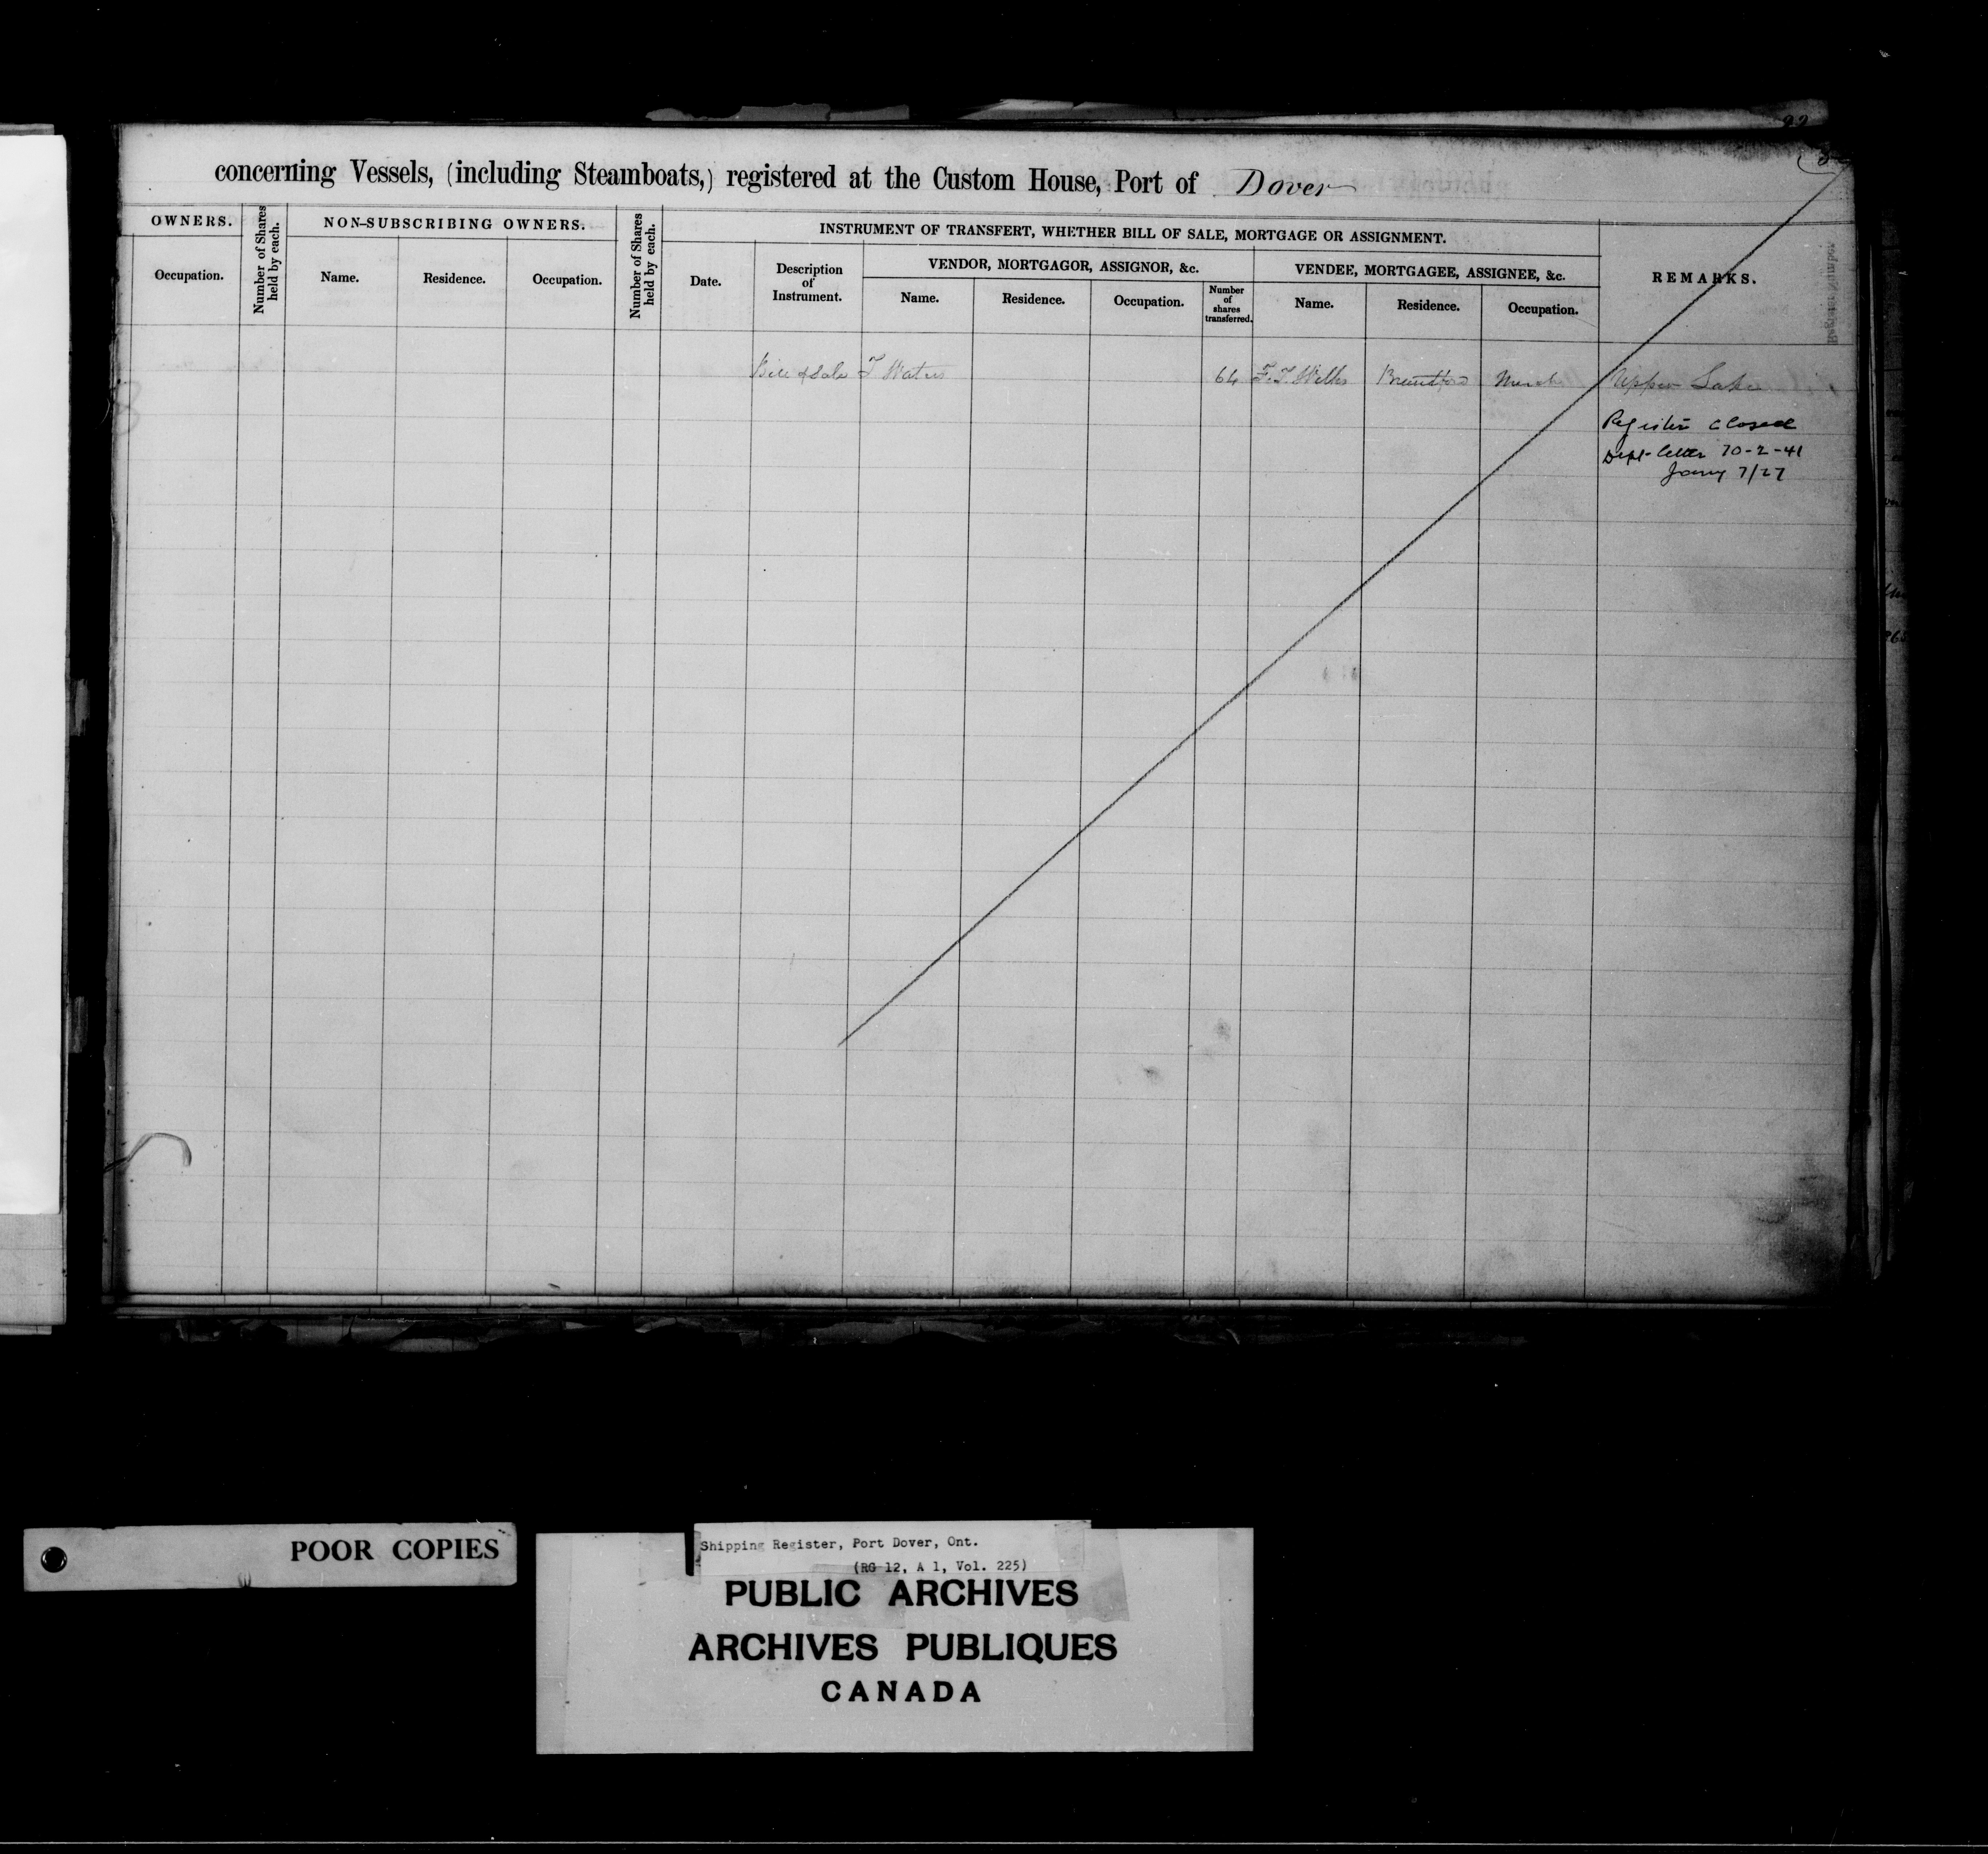 concerning Vessels, (including Steamboats,) registered at the Custom House, Port of Dover
OWNERS.
Occupation.
Number of Shares held by each.
NON-SUBSCRIBING OWNERS.
Name.
Residence.
Occupation.
Number of Shares held by each.
INSTRUMENT OF TRANSFERT, WHETHER BILL OF SALE, MORTGAGE OR ASSIGNMENT.
Date.
Description
of
Instrument.
VENDOR, MORTGAGOR, ASSIGNOR, &c.
Name.
Residence.
Occupation.
Number
of
shares
transferred.
VENDEE, MORTGAGEE, ASSIGNEE, &c.
Name.
Residence.
Occupation.
REMARKS.
Bill of Sale T Waters 64 F. T. Wilkes Brantford Upper Lake
Register closed
Dept- letter 70-2-41
Jany 7/27
POOR COPIES
Shipping Register, Port Dover, Ont.
(RG 12, A 1, Vol. 225)
PUBLIC ARCHIVES
ARCHIVES PUBLIQUES
CANADA